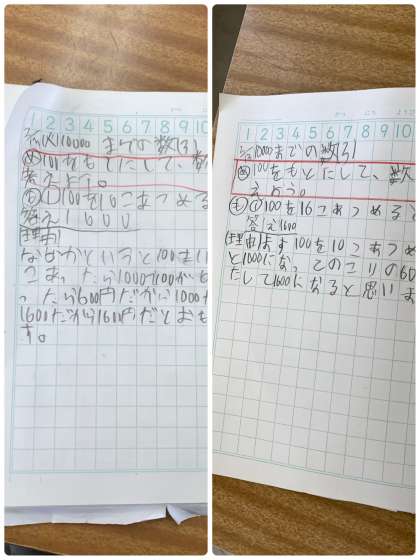 1 2 3 4 5 6 7 8 9 10
10000までの数
め 100をもとにして、数
考えよう。
も① 100を16こあつめる
答え1600
理由
なぜかというと100を
1000
たら600円だから1000
1600だから1600円だとおも
す。
1 2 3 4 5 6 7 8 9 10
10000までの数
め 100をもとにして、数
えよう。
も① 100を16こあつめると
答え1600
理由 まず100を10こあつめ
と1000になって、のこりの60
たして1600になると思いま